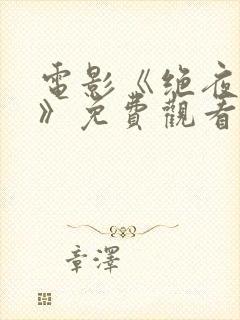 電影《絕夜
》免費觀看
章澤